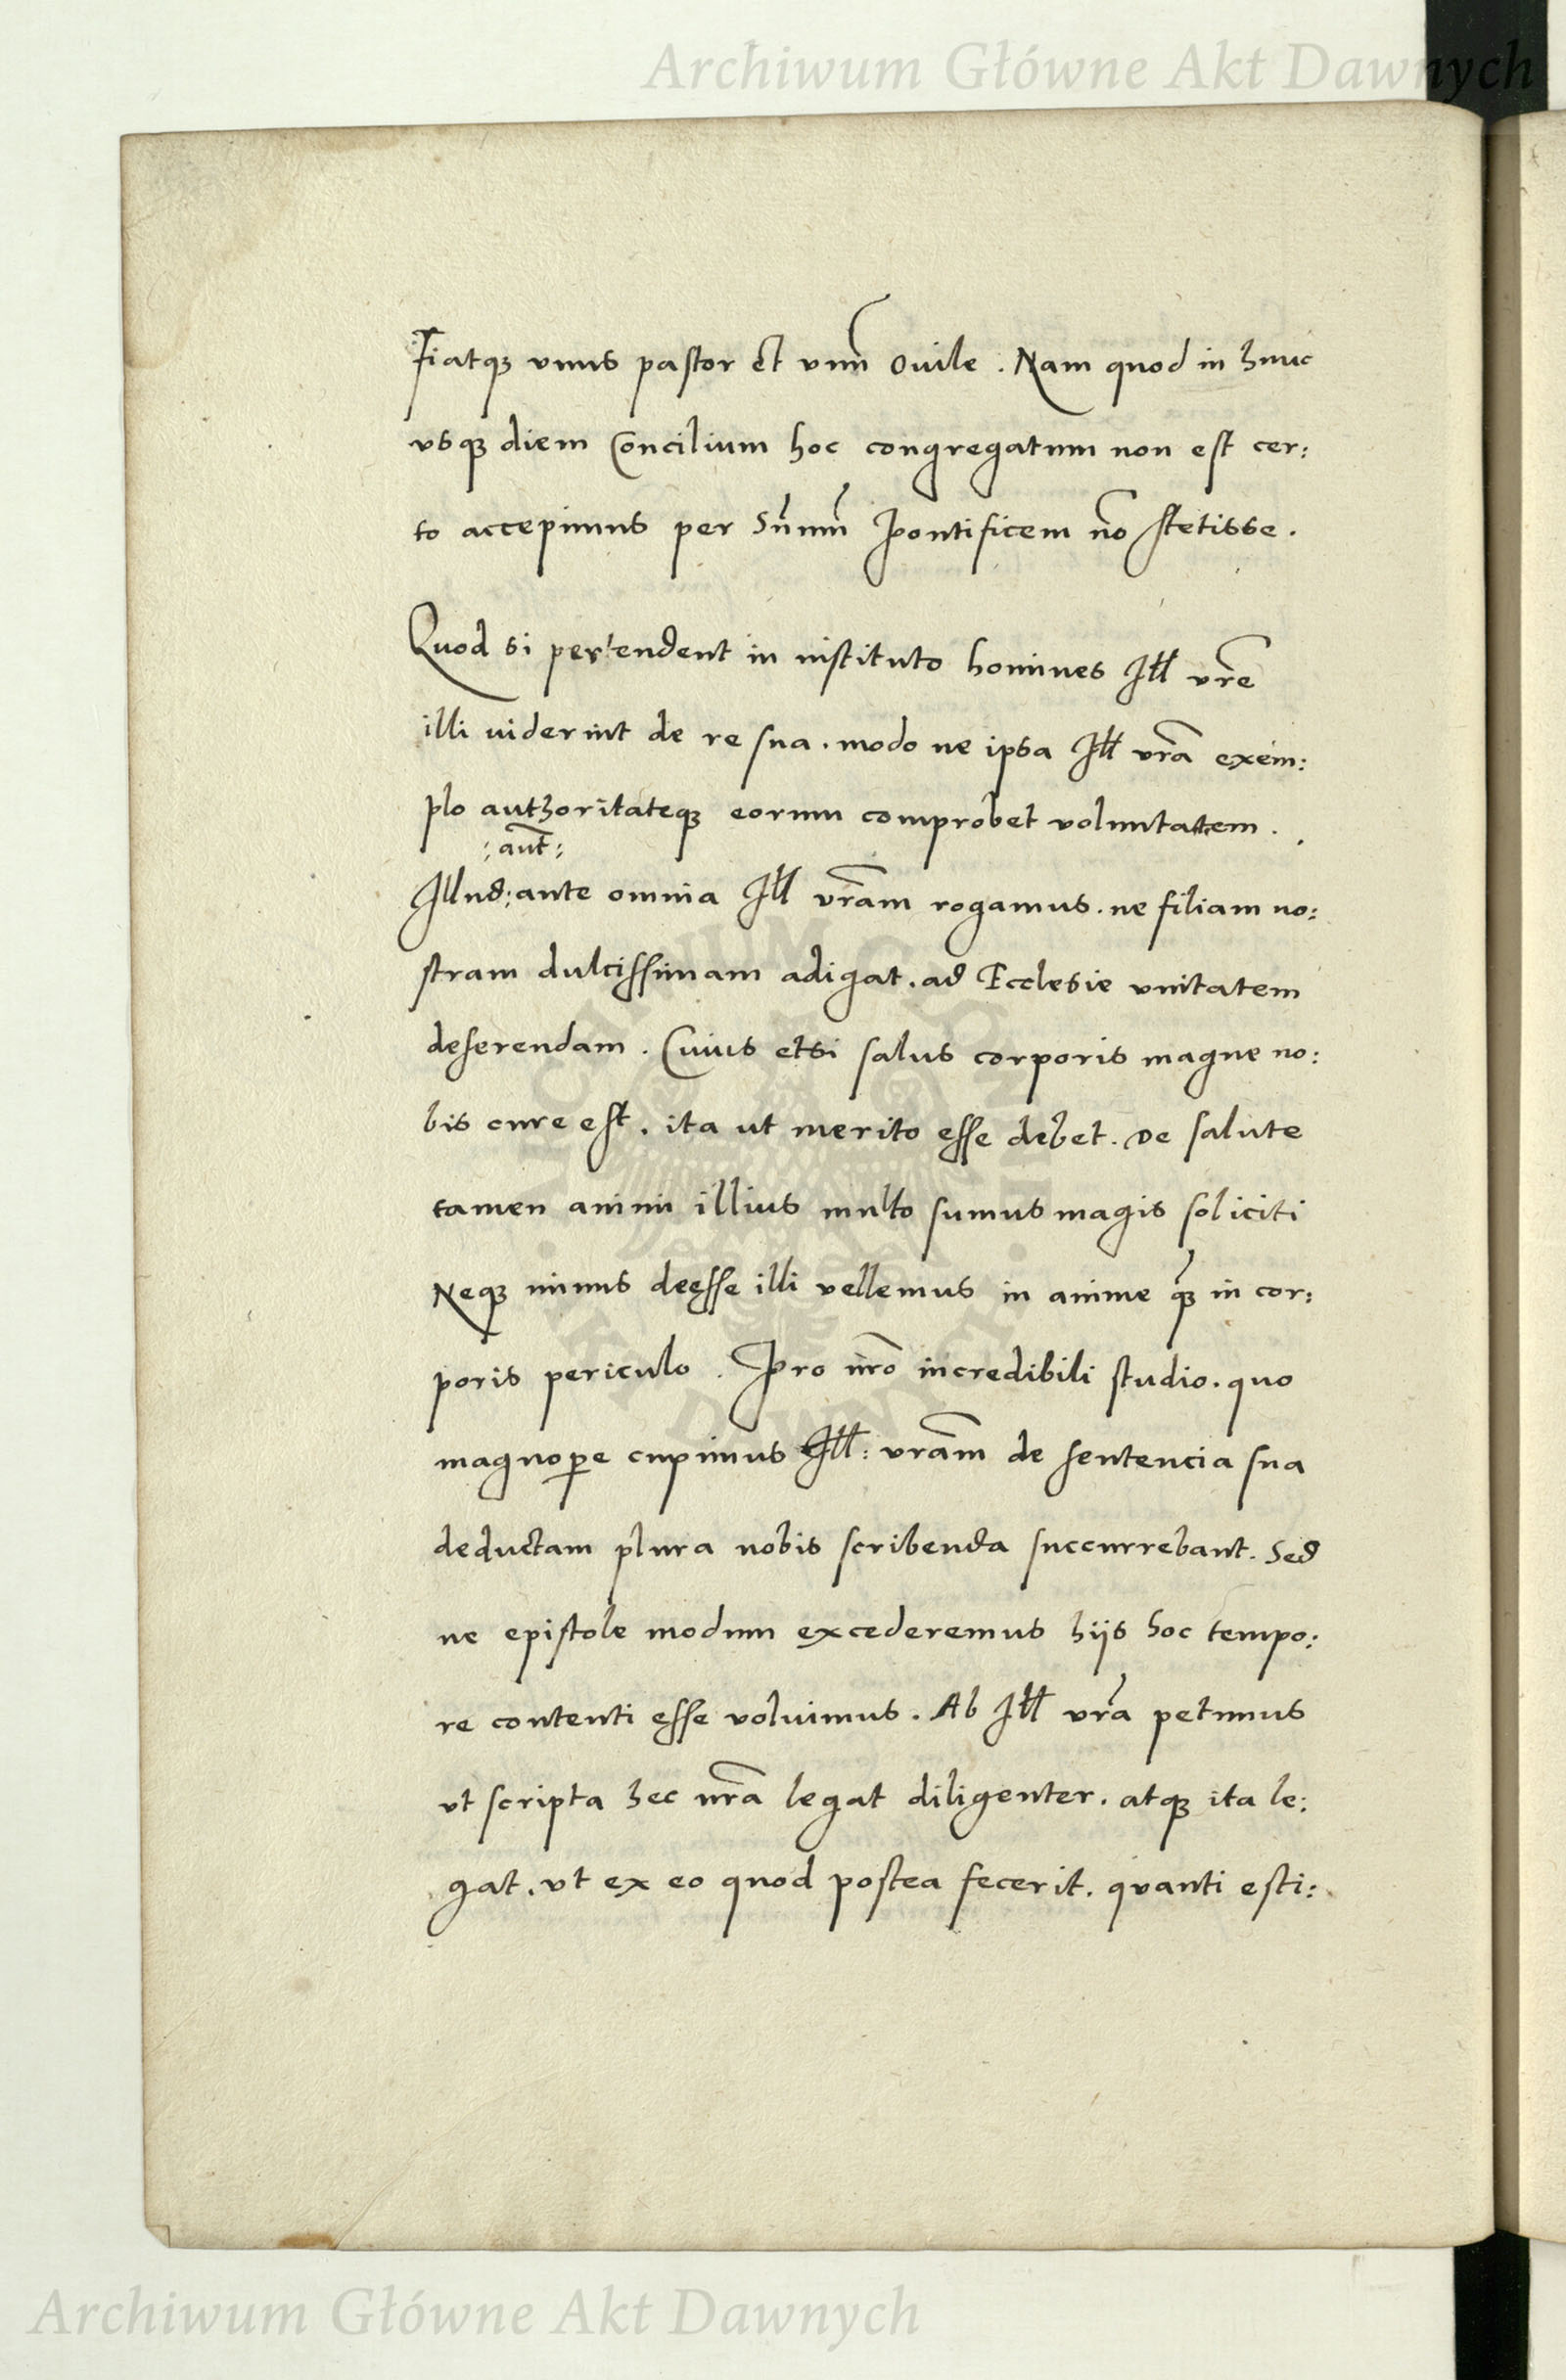 Archiwum Główne Akt Dawnych
Fiatqꝫ vnus pastor et vnū Ouile. Nam quod in hunc
vsqꝫ diem Concilium hoc congregatum non est cer:
to accepimus per Sūmūm Pontificem nō stetisse.
Quod si pertendent in instituto homines Ill vrē
illi viderint de re sua. modo ne ipsa Ill vrā exem:
plo authoritateqꝫ eorum comprobet voluntatem.
:aūt:
Illud: ante omnia Ill vrām rogamus. ne filiam no:
stram dulcissimam adigat. ad Ecclesie vnitatem
deserendam. Cuius etsi salus corporis magne no:
bis cure est. ita ut merito esse debet. De salute
tamen animi illius multo sumus magis soliciti
Neqꝫ minus deesse illi vellemus in anime qꝫ̄ in cor:
poris periculo. Pro nrō incredibili studio. quo
magnoꝑe cupimus Ill: vrām de sentencia sua
deductam plura nobis scribenda succurrebant. Sed
ne epistole modum excederemus hijs hoc tempo:
re contenti esse voluimus. Ab Ill vrā petimus
vt scripta hec nrā legat diligenter. atqꝫ ita le:
gat. vt ex eo quod postea fecerit. quanti esti:
ARCHIWUM GŁÓWNE AKT DAWNYCH
Archiwum Główne Akt Dawnych